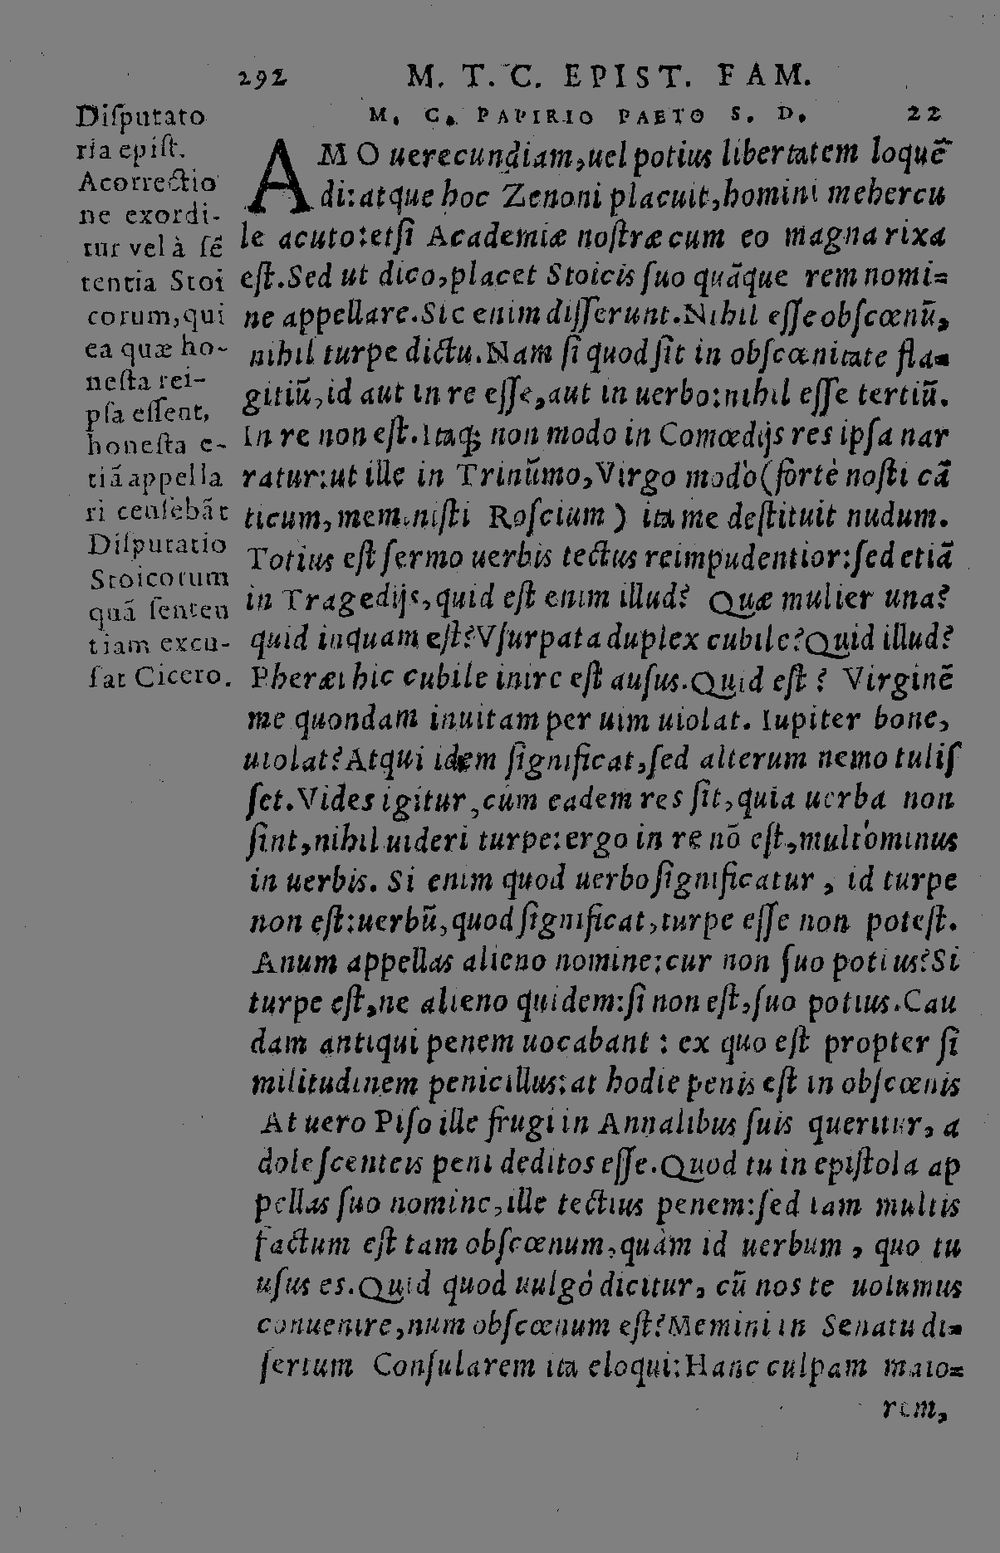 292 M. T. C. EPIST. FAM.
M. C. PAPIRIO PAETO S. D. 22
Diſputato
ria epiſt.
A correctio
ne exordi-
tur vel à ſẽ
tentia Stoi
corum, qui
ea quæ ho-
neſta rei-
pſa eſſent,
honeſta e-
tiã appella
ri cenſebãt
Diſputatio
Stoicorum
quã ſenten
tiam excu-
ſat Cicero.
AMO uerecundiam, uel potius libertatem loquẽ
di: atque hoc Zenoni placuit, homini mehercu
le acuto: etſi Academiæ noſtræ cum eo magna rixa
eſt. Sed ut dico, placet Stoicis ſuo quãque rem nomi=
ne appellare. Sic enim diſſerunt. Nihil eſſe obſcœnũ,
nihil turpe dictu. Nam ſi quod ſit in obſcœnitate fla=
gitiũ, id aut in re eſſe, aut in uerbo: nihil eſſe tertiũ.
In re non eſt. Itaq; non modo in Comœdijs res ipſa nar
ratur: ut ille in Trinũmo, Virgo modò (fortè noſti cã
ticum, meminiſti Roſcium) ita me deſtituit nudum.
Totius eſt ſermo uerbis tectus re impudentior: ſed etiã
in Tragedijs, quid eſt enim illud? Quæ mulier una?
quid inquam eſt? Vſurpata duplex cubile? Quid illud?
Pheræi hic cubile inire eſt auſus. Quid eſt? Virginẽ
me quondam inuitam per uim uiolat. Iupiter bone,
uiolat? Atqui idem ſignificat, ſed alterum nemo tuliſ
ſet. Vides igitur, cum eadem res ſit, quia uerba non
ſint, nihil uideri turpe: ergo in re nõ eſt, multò minus
in uerbis. Si enim quod uerbo ſignificatur, id turpe
non eſt: uerbũ, quod ſignificat, turpe eſſe non poteſt.
Anum appellas alieno nomine: cur non ſuo potius? Si
turpe eſt, ne alieno quidem: ſi non eſt, ſuo potius. Cau
dam antiqui penem uocabant: ex quo eſt propter ſi
militudinem penicillus: at hodie penis eſt in obſcœnis
At uero Piſo ille frugi in Annalibus ſuis queritur, a
doleſcenteis peni deditos eſſe. Quod tu in epiſtola ap
pellas ſuo nomine, ille tectius penem: ſed iam multis
factum eſt tam obſcœnum, quàm id uerbum, quo tu
uſus es. Quid quod uulgò dicitur, cũ nos te uolumus
conuenire, num obſcœnum eſt? Memini in Senatu di=
ſertum Conſularem ita eloqui: Hanc culpam maio=
rem,